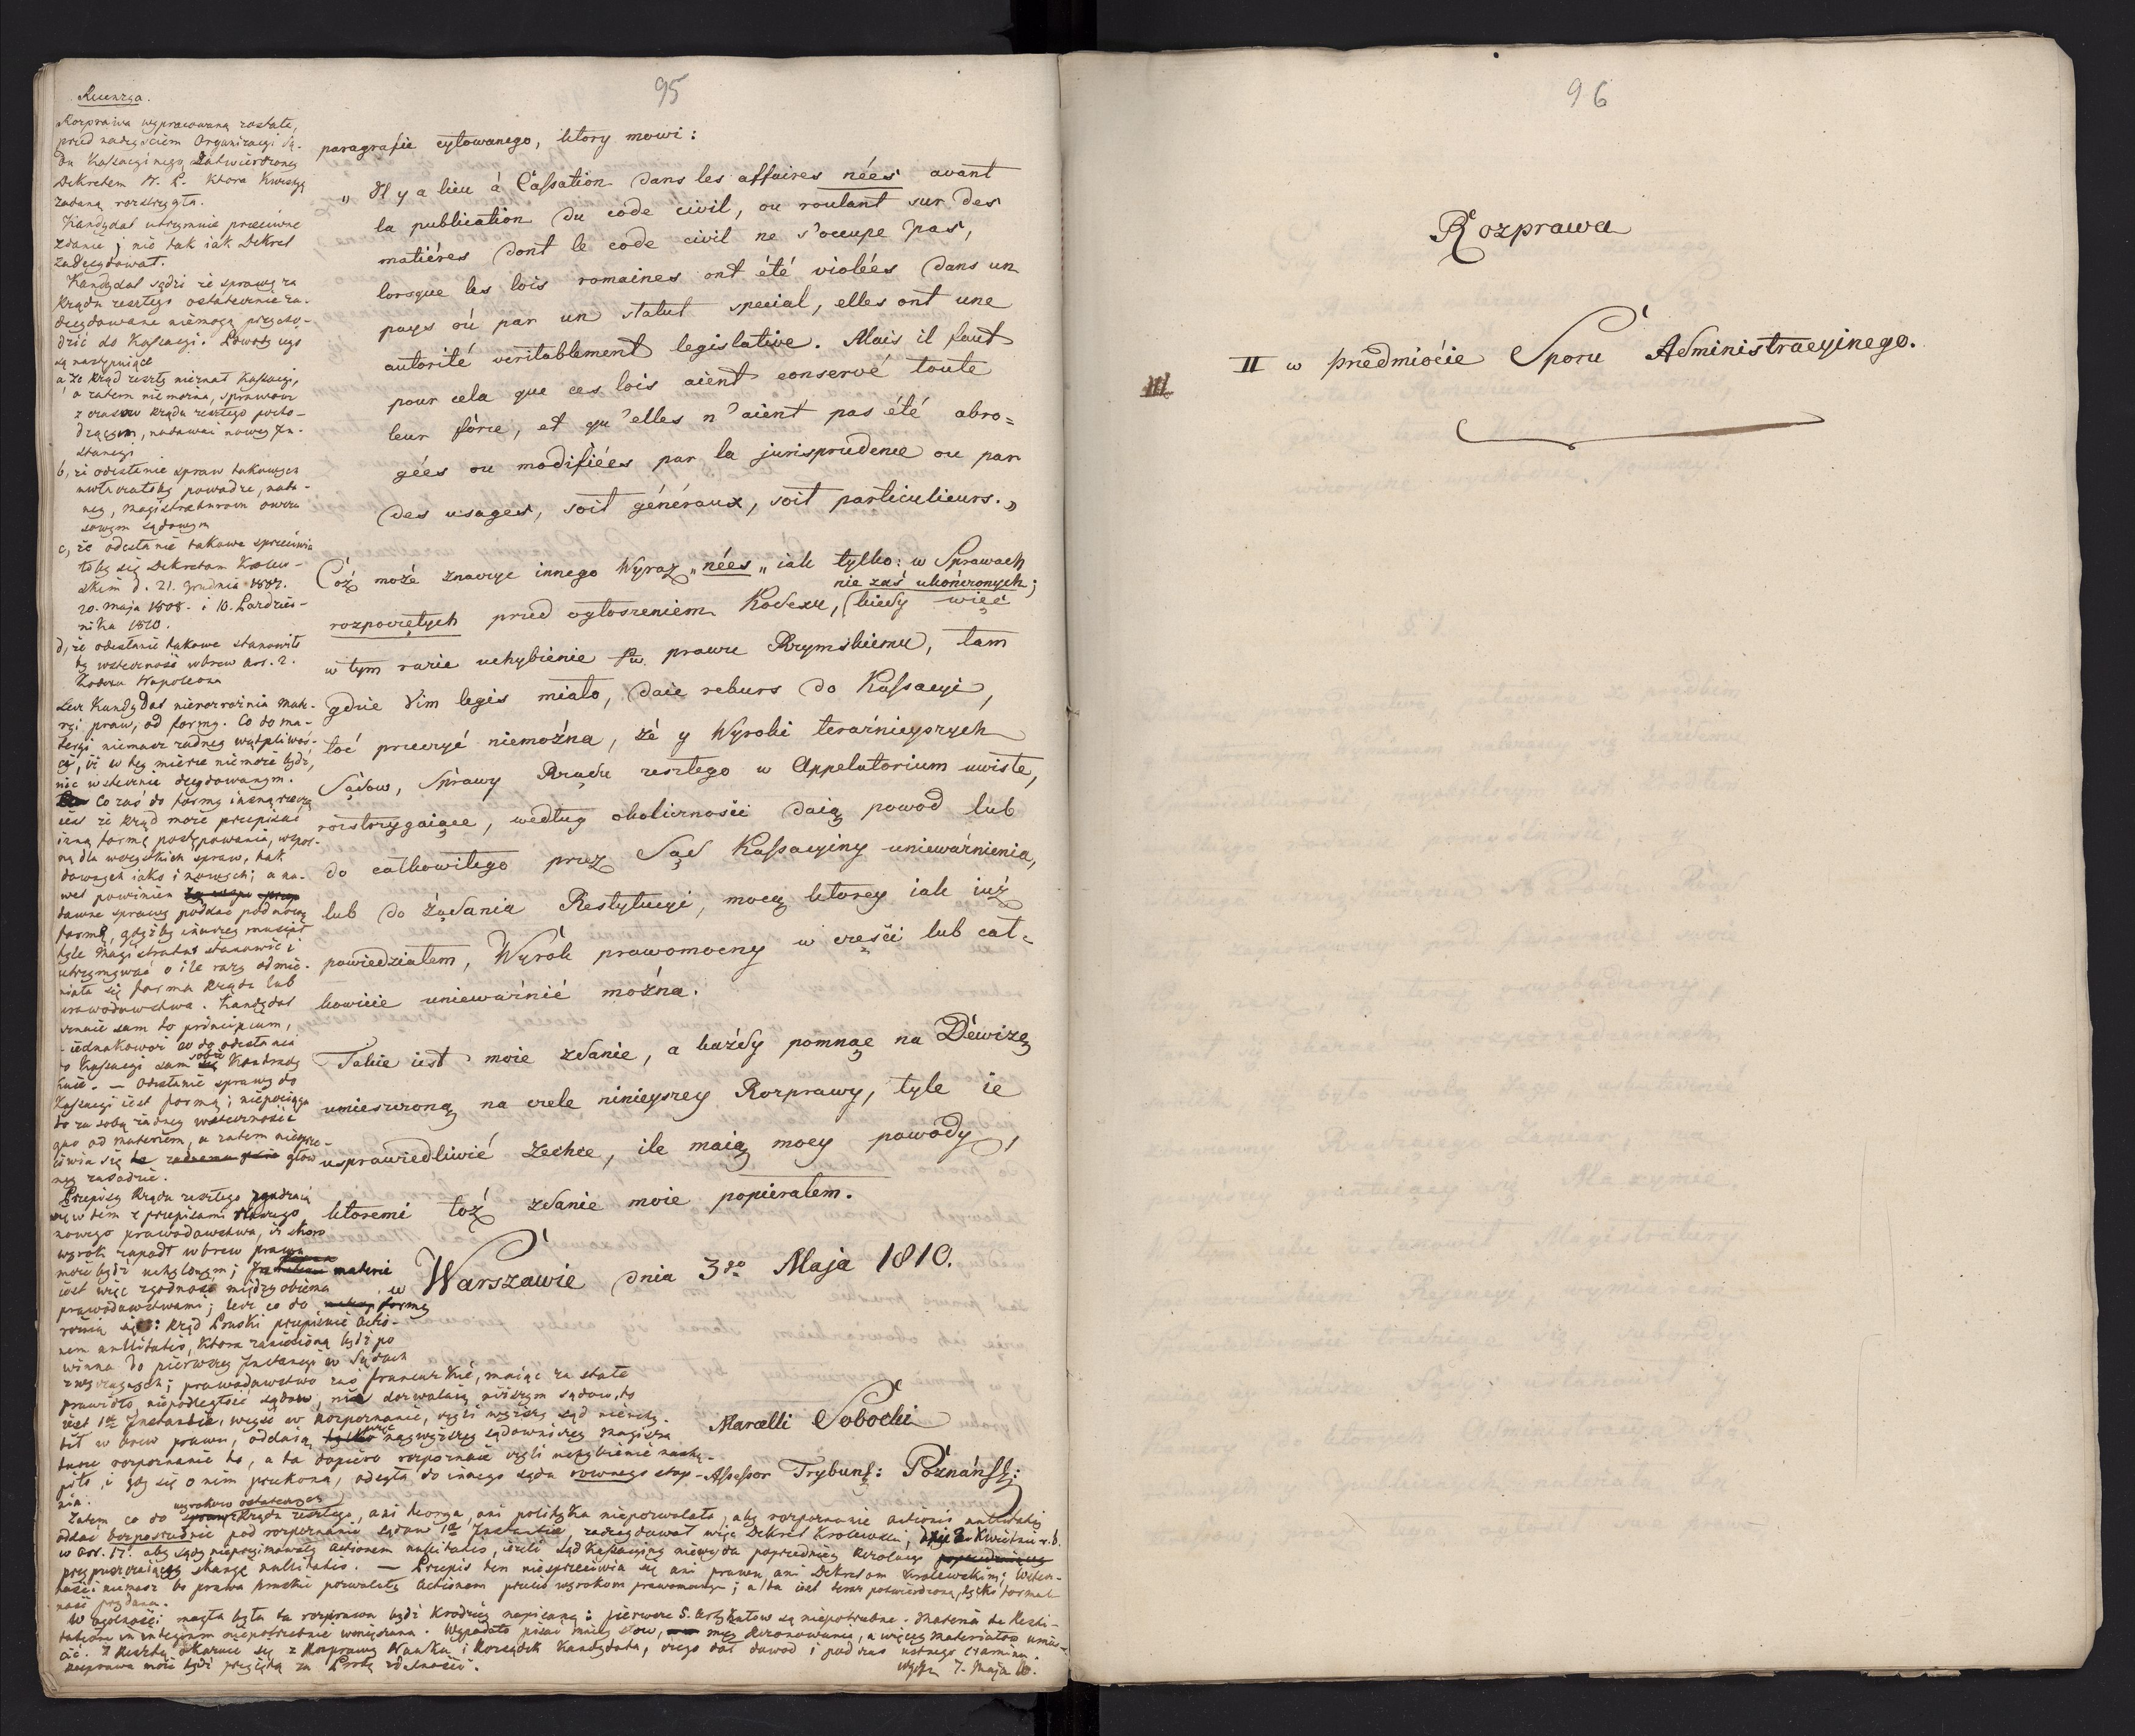 95
paragrafie cytowanego, ktory mowi:
„ Il y a lieu à Cassation dans les affaires nées avant
la publication du code civil, ou roulant sur des
matiéres dont le code civil ne s'occupe pas,
lorsque les lois romaines ont été violées dans un
pays où par un statut special, elles ont une
autorité veritablement legislative. Mais il faut
pour cela que ces lois aient conservé toute
leur force, et qu'elles n'aient pas été abro=
gées ou modifiées par la jurisprudence ou par
des usages, soit généraux, soit particulieurs. „
Cóż może znaczyc innego Wyraz „nées„ iak tylko: w Sprawach
nie zaś ukończonych;
rozpoczętych przed ogłoszeniem Kodexu, (kiedy więc
w tym razie uchybienie prawu Rzymskiemu, tam
gdzie Vim legis miało, daie rekurs do Kassacyi,
toć przeczyć niemożna, że y Wyroki teraźnieyszych
Sądow, Sprawy Rządu zeszłego w Appelatorium uwisłe,
rozstrzygaiące, według okoliczności daią powod lub
do całkowitego przez Sąd Kassacyiny unieważnienia,
lub do żądania Restytucyi, mocą ktorey iak iuż
powiedziałem, Wyrok prawomocny w części lub cał=
kowicie unieważnić można.
Takie iest moie zdanie, a każdy pomnąc na Dewizę
umieszczoną na czele ninieyszey Rozprawy, tyle ie
usprawiedliwić zechce, ile maią mocy powody,
ktoremi toż zdanie moie popierałem.
w Warszawie dnia 3go Maja 1810.
Marcelli Sobocki
Assessor Trybunł: Poznańsk:
Rozprawa wypracowaną została,
przed nadeysciem Organizacyi Są-
du Kassacyinego Zatwierdzoney
Dekretem N. P. ktora kwestyą
zadaną rozstrzygła.
Kandydat utrzymuie przeciwne
zdanie; nie tak iak Dekret
zadecydował.
Kandydat sądzi że sprawy za
Rządu zeszłego ostatecznie za-
decydowane niemogą przycho-
dzić do Kassacyi. Powody iego
są następuiące
a że Rząd zeszły nieznał Kassacyi,
a zatem nie można, sprawom
z czasow Rządu zeszłego pocho-
dzącym, nadawać nowey In-
stancyi
b, że odesłanie spraw takowych
uwłaczałoby powadze, nada-
ney, magistraturom owcze
sowym sądowym
c, że odesłanie takowe sprzeciwia
łoby się Dekretom Krolew-
skim d. 21. grudnia 1807.
20. maja 1808. i 10. Pazdzier-
nika 1810.
d, że odesłanie takowe stanowiło
by wsteczność wbrew Art. 2.
Kodexu Napoleona
Lecz Kandydat nierozróżnia mate-
ryi praw, od formy. Co do ma-
teryi niemasz żadney wątpliwoś-
ci, iż w tey mierze niemoże bydź,
nic wstecznie decydowanym.
Co zaś do formy inszą rzeczą
iest że Rząd może przepisać
inną formę postępowania, wspol-
ną dla wszystkich spraw, tak
dawnych iako i nowych; a na-
wet powinien
dawne sprawy poddać pod nową
formę, gdyżby inaczey musiał
tyle Magistratur stanowić i
utrzymywać o ile razy odmie-
niała się forma Rządu lub
prawodawstwa. Kandydat
uznaie sam to principium,
iednakowoż co do odesłania
do Kassacyi sam sobie kontrady
kuie. — Odesłanie sprawy do
Kassacyi iest formą; niepociąga
to za sobą żadney wsteczności
quo ad materiem, a zatem nieprze-
ciwia się głow
ney zasadzie.
Przepisy Rządu zeszłego zgadzaią
się w tem z przepisami
nowego prawodawstwa, iż skoro
wyrok zapadł wbrew prawu
może bydź uchylonym;
iest więc zgodność między obiema
prawodawstwami; lecz co do formy
rożnią się: Rząd Pruski przepisuie actio-
nem nullitatis, ktora zaniesioną bydź po
winna do pierwszey Instancyi w Sądach
zwyczaynych; prawodawstwo zaś francuzkie, maiąc za stałe
prawidło niepodległość sądow, nie dozwalaią niższym sądom, to
iest 1ey Instancie, weyść w rozpoznanie, czyli wyższy sąd nieuchy-
bił w brew prawu, oddaią naywyższey sądowniczey magistra
turze rozpoznanie to, a ta dopiero rozpoznaie czyli uchybienie nastą-
piło, i gdy się o nim przekona, odsyła do innego sądu rownego stop-
nia.
wyrokow ostatecznych
Zatem co do Rządu zeszłego, ani teorya, ani polityka niepozwalała, aby rozpoznanie actionis nullitatis
oddać bezpośrednie pod rozpoznanie sądow 1ey Instancie, zadecydował więc Dekret Krolewski, Kwietnia r. b.
w Art. 17. aby sądy nieprzyimowały actionem nullitatis, ieżeli sąd Kassacyiny niewyda poprzedniczey Rezolucyi
przypuszczaiącey skargę nullitatis. — Przepis ten niesprzeciwia się ani prawu, ani Dekretom Krolewskim; Wstecz-
ności niemasz bo prawa pruskie pozwalały actionem przeciw wyrokom prawomocnym; a ta iest teraz potwierdzoną, tylko formal
ność przydana.
W ogolności mogła była ta rozprawa bydź krodzey napisaną: pierwsze 5. artykułow są niepotrzebne. Materia de Resti-
tutione in integrum niepotrzebnie wmięszana. Wypadało pisać mniey słow, mniey Rezonowania, a więcey Materiałow umieś-
cić. Z Resztą okazuie się z Rozprawy Nauka i Rozsądek Kandydata, czego dał dowod i podczas ustnego examinu.
Rozprawa może bydź przyjętą za Probę zdatności.
7. Maja 10.
96
Rozprawa
II w przedmiocie Sporu Administracyinego.
III.